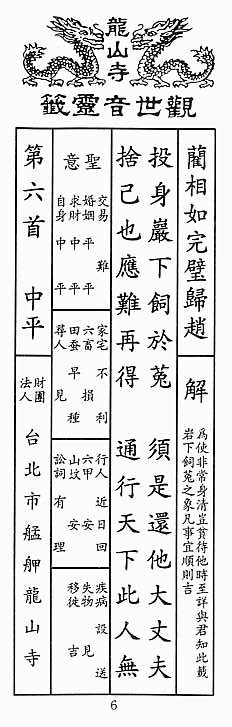 龍山寺
觀世音靈籤
藺相如完璧歸趙
解
為使非常身清豈貧待他時至詳與君知此籤
岩下飼菟之象凡事宜順則吉
投身巖下飼於菟　須是還他大丈夫
捨己也應難再得　通行天下此人無
聖意
交易 難
婚姻 平 平
求財 中 平
自身 中 平
家宅 不利
六畜 損
田蚕 早種
尋人 見
行人 近日回
六甲 安
山坟 安
訟詞 有理
疾病 設送
失物 見
移徙 吉
第六首　中平
財團法人
台北市艋舺龍山寺
6